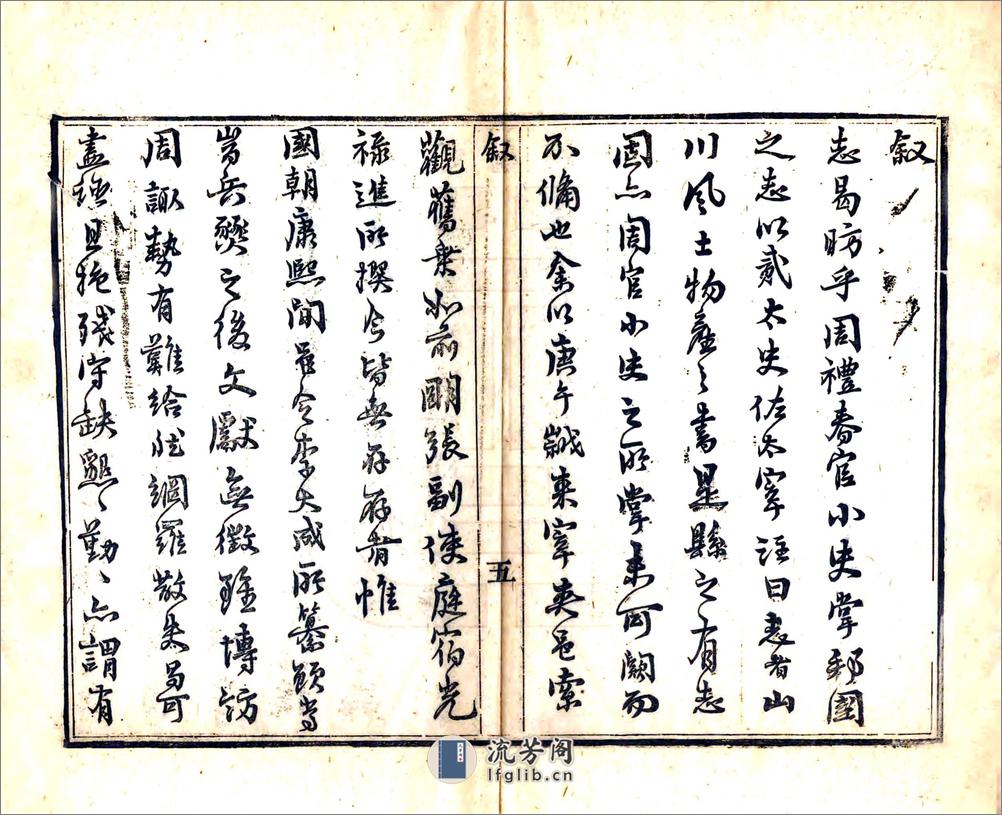 叙
志曷昉乎周禮春官小史掌邦國
之志以貳太史佐太宰註曰志者山
川風土物產之書是縣之有志
固亦周官小史之所掌未可闕而
不備也余以庚午織來宰夾邑索
叙
五
觀舊乘如前明張副使庭宿光
祿進所撰今皆無存存者惟
國朝康熙間邑令李大成所纂顧當
當兵燹之後文獻無徵雖博訪
周諏勢有難給然網羅散失曷可
盡雖且抱殘守缺懇々勤々亦謂有
流芳阁
lfglib.cn